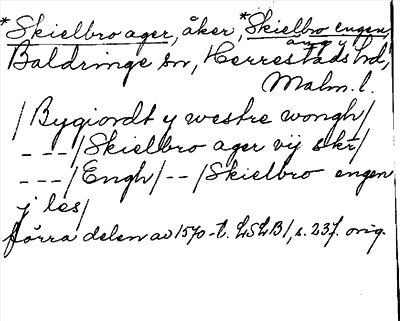 *Skielbro ager, åker, *Skielbro engen,
äng i
Baldringe sn, Herrestads hd,
Malm. l.
/Bygiordt y westre wongh/
---/Skielbro ager vij skr/
---/Engh/--/Skielbro engen
j les/
förra delen av 1570-t. LSLB1, s. 237. orig.